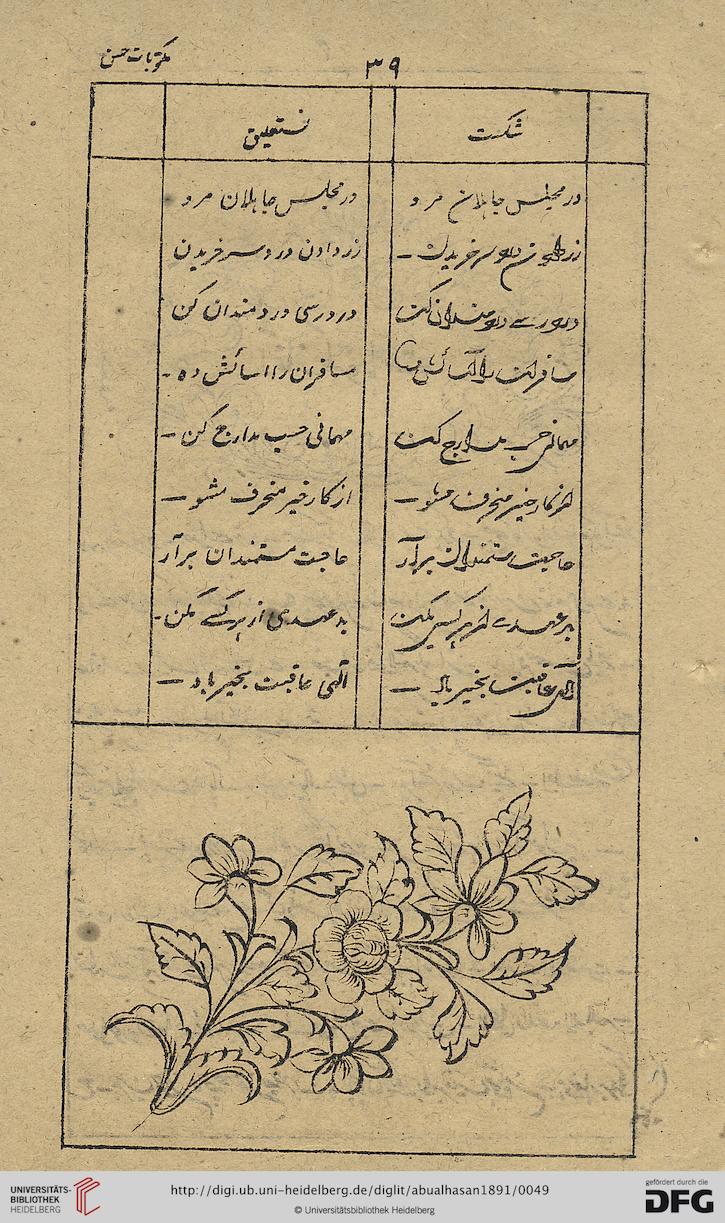 مکتوبات حسن
۳۹
شکست
نستعلیق
در مجلس جاہلان مرو
در مجلس جاہلان مرو
زر دادن درد سر خریدن –
زر دادن درد سر خریدن
درد رسی دردمندان کن
در درسی دردمندان کن
مسافران را آسائش ده
مسافران را اسائش ده –
مہمانی حسب مدارج کن
مہمانی حسب مدارج کن –
از کار خیر منحرف مشو –
از کار خیر منحرف مشو –
حاجت مستمندان برآر
حاجت مستمندان برآر
بدعہدی از ہر کسے مکن
بدعہدی از ہر کسے مکن –
الہی عاقبت بخیر باد –
الہی عاقبت بخیر باد –
UNIVERSITÄTS-
BIBLIOTHEK
HEIDELBERG
http://digi.ub.uni-heidelberg.de/diglit/abualhasan1891/0049
© Universitätsbibliothek Heidelberg
gefördert durch die
DFG